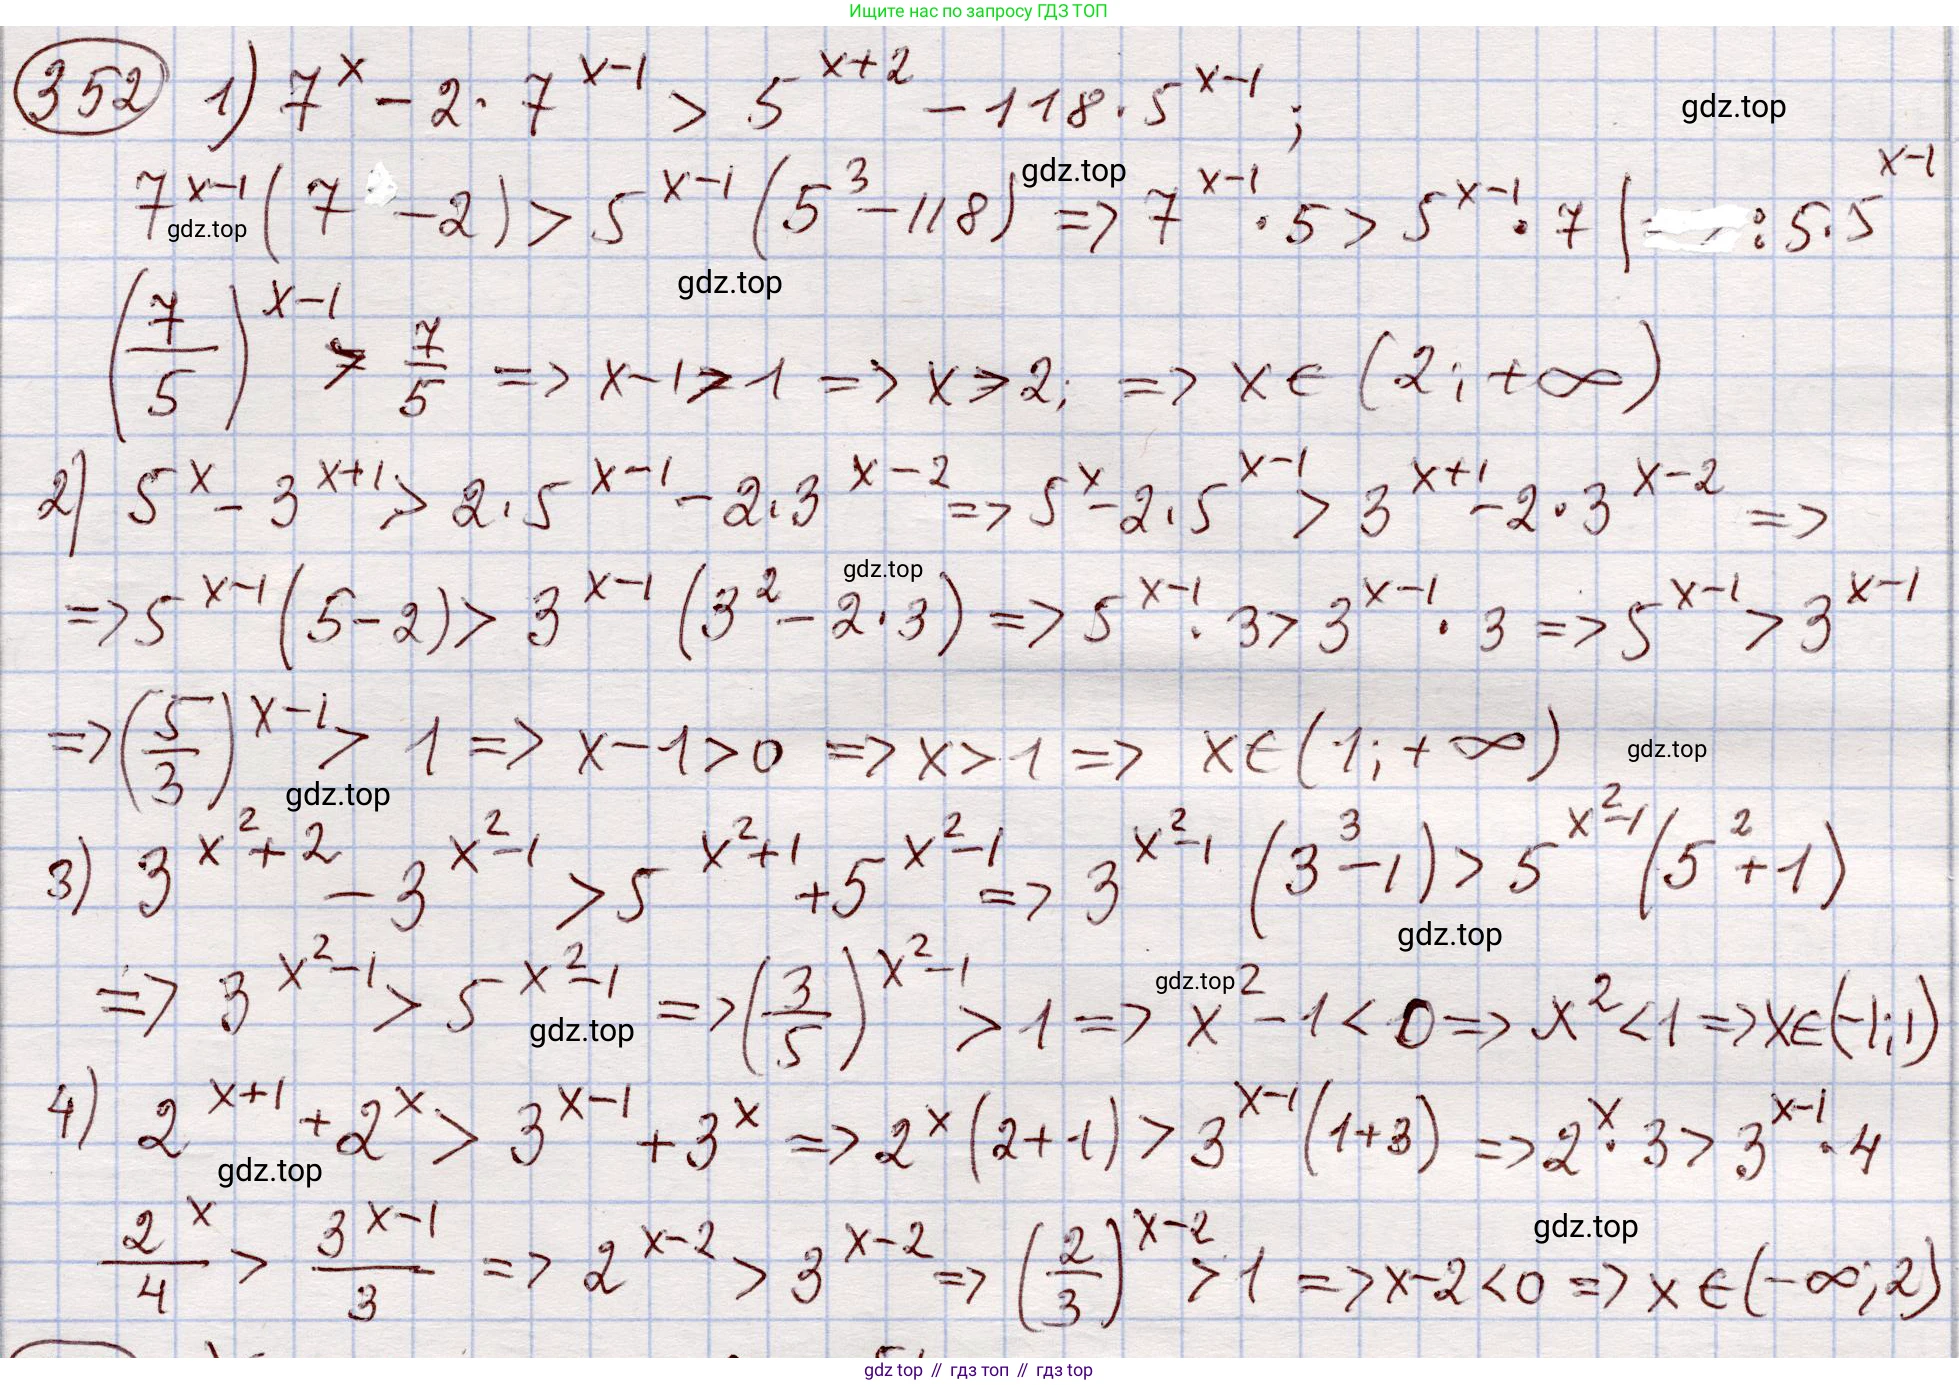 Ищите нас по запросу ГДЗ ТОП
352 1) 7^x - 2·7^{x-1} > 5^{x+2} - 118·5^{x-1};
gdz.top
7^{x-1}(7 - 2) > 5^{x-1}(5^3 - 118) => 7^{x-1}·5 > 5^{x-1}·7 | : 5·5^{x-1}
gdz.top
gdz.top
gdz.top
(7/5)^{x-1} > 7/5 => x-1 > 1 => x > 2; => x∈(2; +∞)
2) 5^x - 3^{x+1} > 2·5^{x-1} - 2·3^{x-2} => 5^x - 2·5^{x-1} > 3^{x+1} - 2·3^{x-2} =>
gdz.top
=> 5^{x-1}(5-2) > 3^{x-1}(3^2 - 2·3) => 5^{x-1}·3 > 3^{x-1}·3 => 5^{x-1} > 3^{x-1}
=> (5/3)^{x-1} > 1 => x-1 > 0 => x > 1 => x∈(1; +∞)
gdz.top
gdz.top
3) 3^{x^2+2} - 3^{x^2-1} > 5^{x^2+1} + 5^{x^2-1} => 3^{x^2-1}(3^3 - 1) > 5^{x^2-1}(5^2 + 1)
gdz.top
=> 3^{x^2-1} > 5^{x^2-1} => (3/5)^{x^2-1} > 1 => x^2 - 1 < 0 => x^2 < 1 => x∈(-1; 1)
gdz.top
gdz.top
4) 2^{x+1} + 2^x > 3^{x-1} + 3^x => 2^x(2+1) > 3^{x-1}(1+3) => 2^x·3 > 3^{x-1}·4
gdz.top
2^x/4 > 3^{x-1}/3 => 2^{x-2} > 3^{x-2} => (2/3)^{x-2} > 1 => x-2 < 0 => x∈(-∞; 2)
gdz.top
gdz.top // гдз топ // гдз top